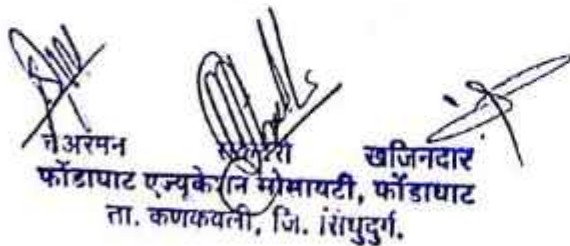 चेअरमन सेक्रेटरी खजिनदार
फोंडाघाट एज्युकेशन सोसायटी, फोंडाघाट
ता. कणकवली, जि. सिंधुदुर्ग.